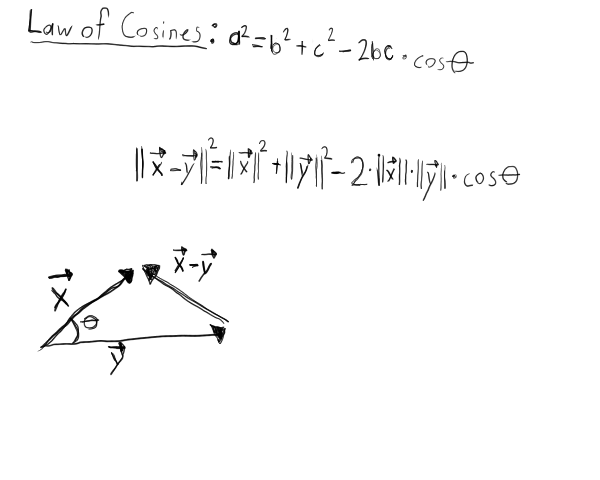 Law of Cosines: a²=b²+c²-2bc·cosθ
||x⃗-y⃗||²=||x⃗||²+||y⃗||²-2·||x⃗||·||y⃗||·cosθ
x⃗-y⃗
x⃗
θ
y⃗